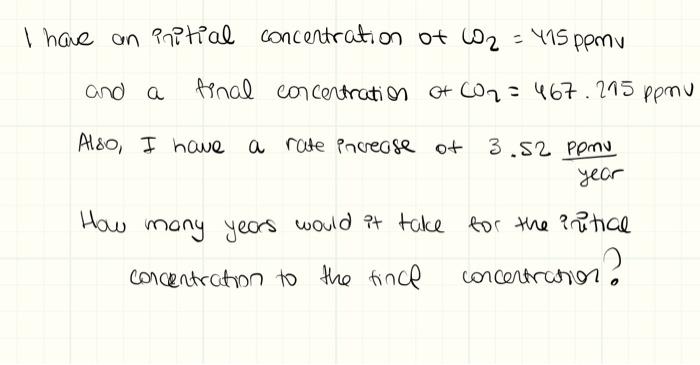 I have an initial concentration of CO2 = 415 ppmv
and a final concentration of CO2 = 467.215 ppmv
Also, I have a rate increase of 3.52 ppmv/year
How many years would it take for the initial
concentration to the final concentration?